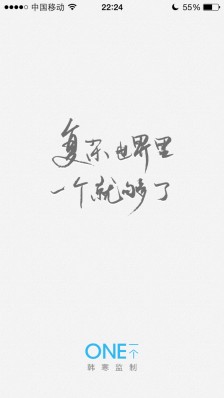 中国移动 22:24 55%
复杂世界里
一个就够了
ONE一个
韩寒监制